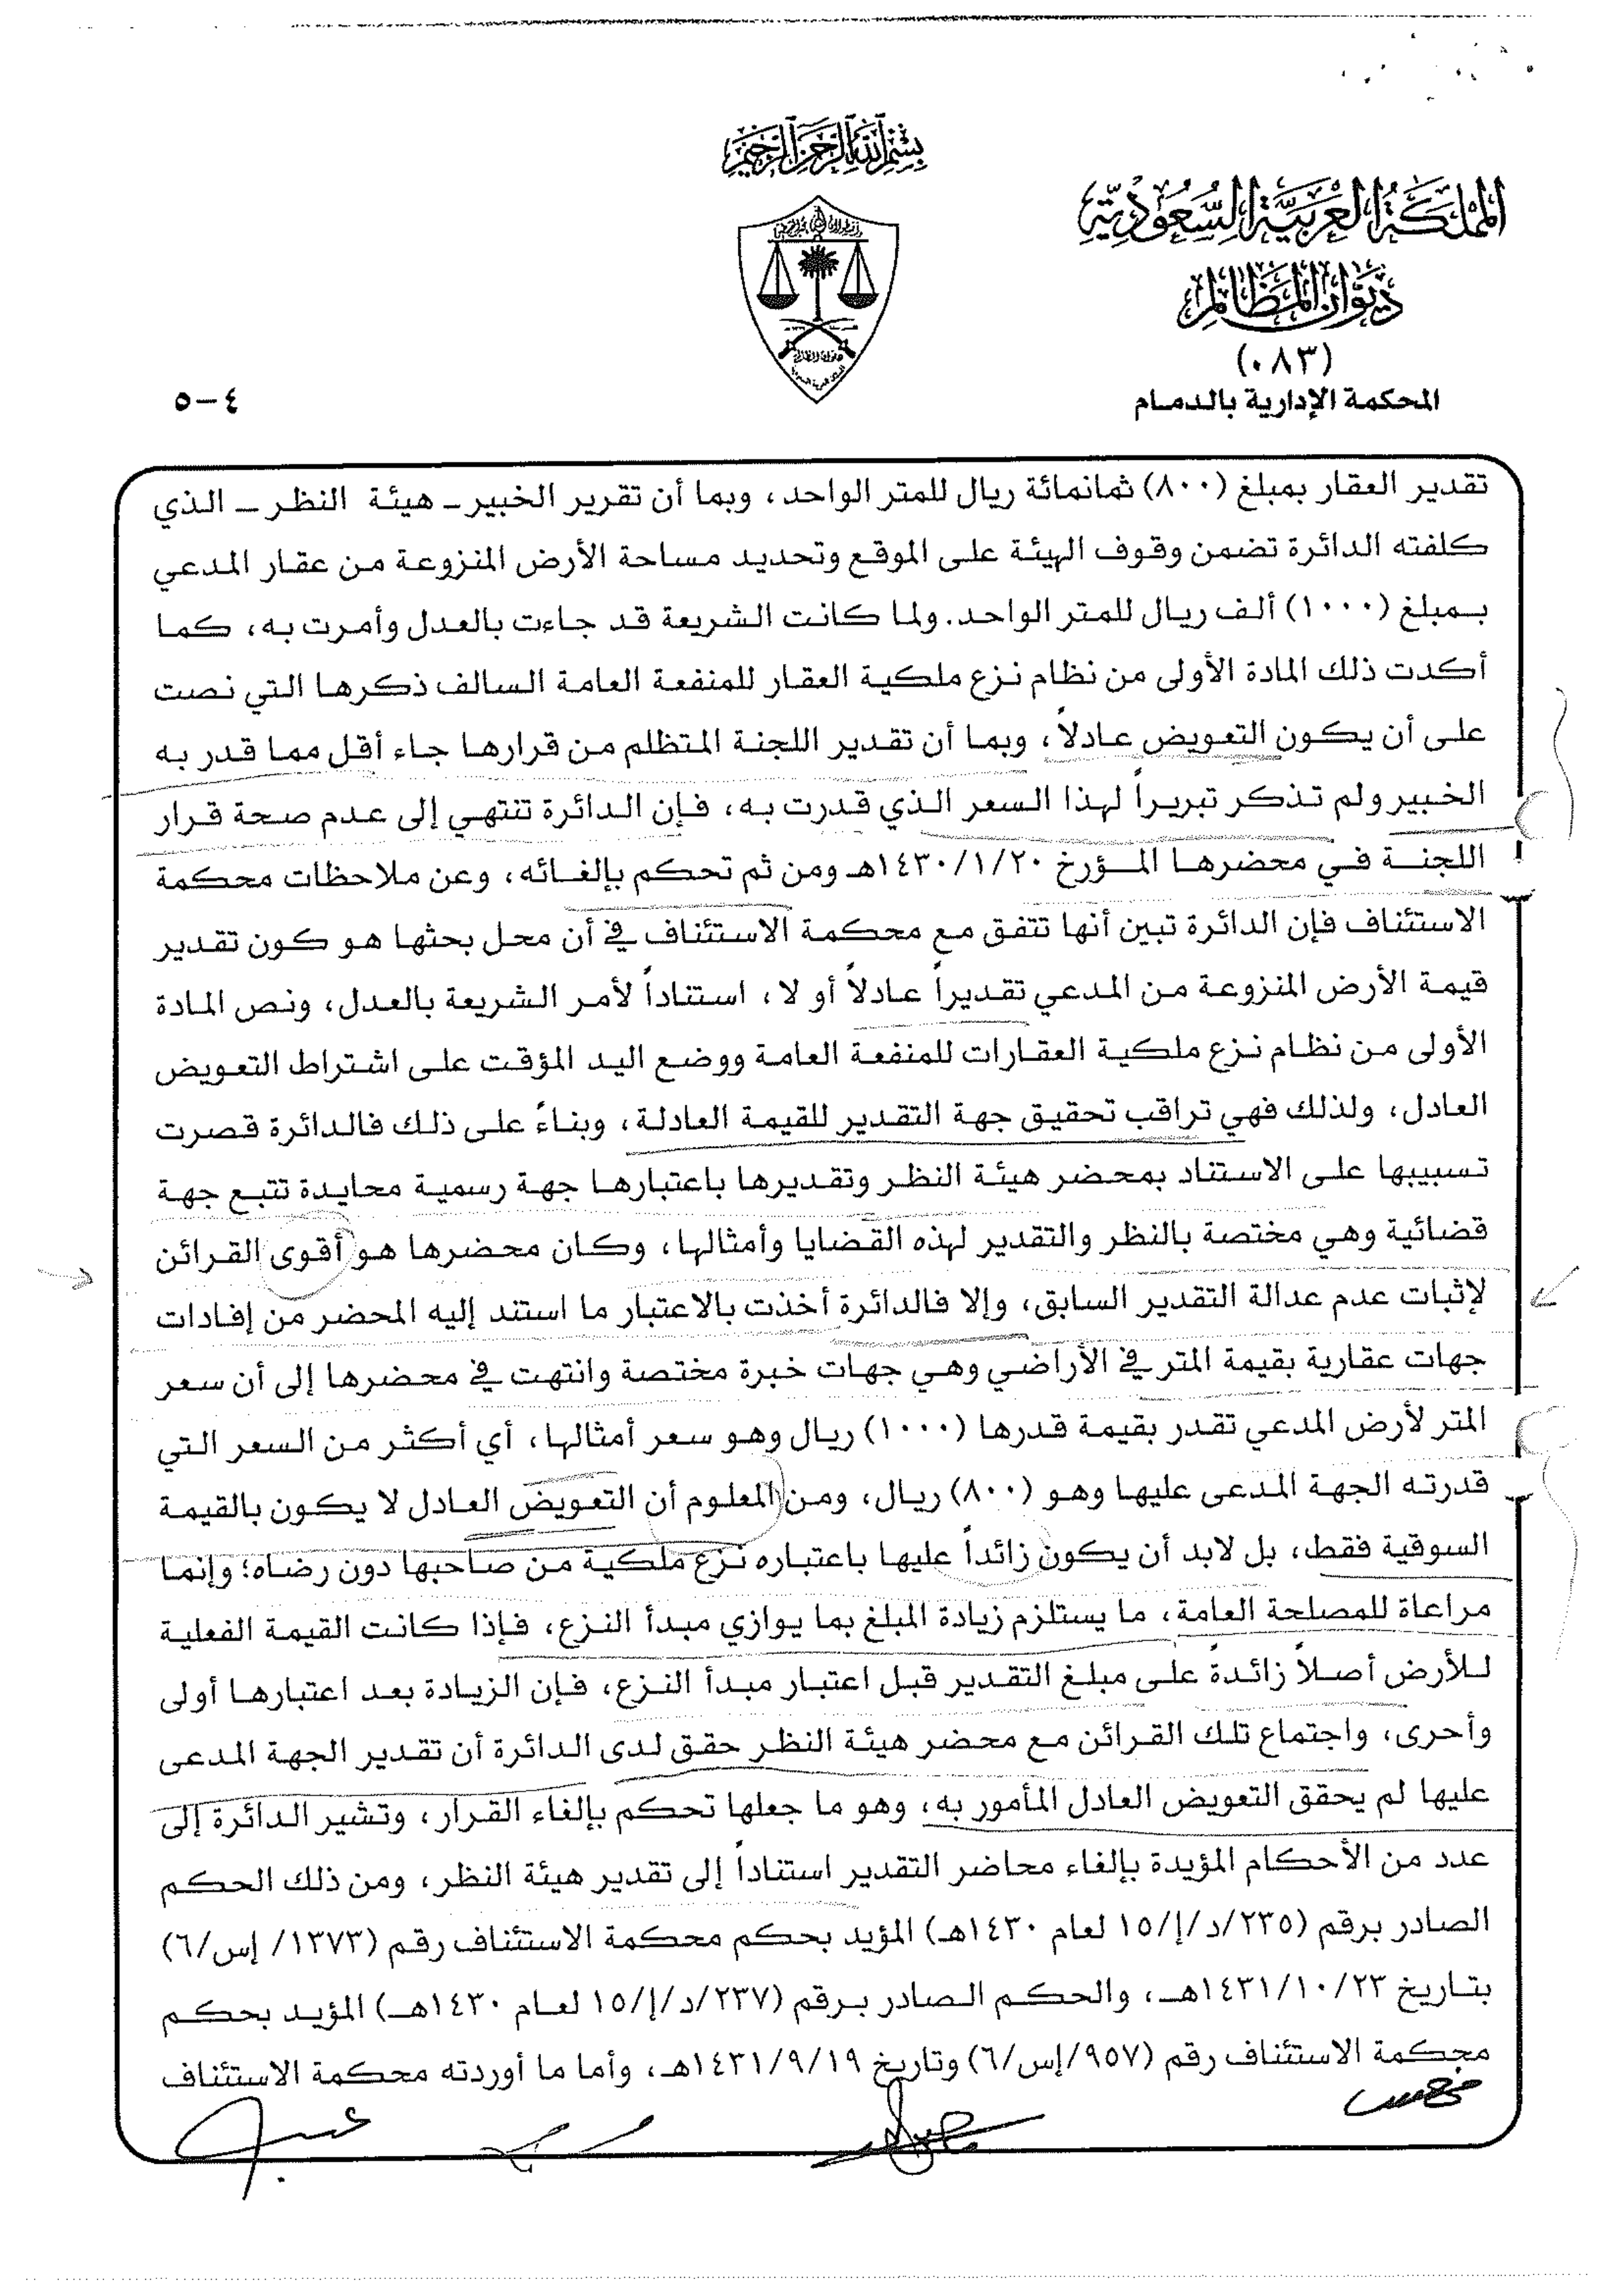 بسم الله الرحمن الرحيم
المملكة العربية السعودية
ديوان المظالم
(٠٨٣)
المحكمة الإدارية بالدمام
٤-٥
تقدير العقار بمبلغ (٨٠٠) ثمانمائة ريال للمتر الواحد، وبما أن تقرير الخبير – هيئة النظر – الذي
كلفته الدائرة تضمن وقوف الهيئة على الموقع وتحديد مساحة الأرض المنزوعة من عقار المدعي
بمبلغ (١٠٠٠) ألف ريال للمتر الواحد. ولما كانت الشريعة قد جاءت بالعدل وأمرت به، كما
أكدت ذلك المادة الأولى من نظام نزع ملكية العقار للمنفعة العامة السالف ذكرها التي نصت
على أن يكون التعويض عادلاً، وبما أن تقدير اللجنة المتظلم من قرارها جاء أقل مما قدر به
الخبير ولم تذكر تبريراً لهذا السعر الذي قدرت به، فإن الدائرة تنتهي إلى عدم صحة قرار
اللجنة في محضرها المؤرخ ١٤٣٠/١/٢٠هـ ومن ثم تحكم بإلغائه، وعن ملاحظات محكمة
الاستئناف فإن الدائرة تبين أنها تتفق مع محكمة الاستئناف في أن محل بحثها هو كون تقدير
قيمة الأرض المنزوعة من المدعي تقديراً عادلاً أو لا، استناداً لأمر الشريعة بالعدل، ونص المادة
الأولى من نظام نزع ملكية العقارات للمنفعة العامة ووضع اليد المؤقت على اشتراط التعويض
العادل، ولذلك فهي تراقب تحقيق جهة التقدير للقيمة العادلة، وبناءً على ذلك فالدائرة قصرت
تسبيبها على الاستناد بمحضر هيئة النظر وتقديرها باعتبارها جهة رسمية محايدة تتبع جهة
قضائية وهي مختصة بالنظر والتقدير لهذه القضايا وأمثالها، وكان محضرها هو أقوى القرائن
لإثبات عدم عدالة التقدير السابق، وإلا فالدائرة أخذت بالاعتبار ما استند إليه المحضر من إفادات
جهات عقارية بقيمة المتر في الأراضي وهي جهات خبرة مختصة وانتهت في محضرها إلى أن سعر
المتر لأرض المدعي تقدر بقيمة قدرها (١٠٠٠) ريال وهو سعر أمثالها، أي أكثر من السعر التي
قدرته الجهة المدعى عليها وهو (٨٠٠) ريال، ومن المعلوم أن التعويض العادل لا يكون بالقيمة
السوقية فقط، بل لابد أن يكون زائداً عليها باعتباره نزع ملكية من صاحبها دون رضاه؛ وإنما
مراعاة للمصلحة العامة، ما يستلزم زيادة المبلغ بما يوازي مبدأ النزع، فإذا كانت القيمة الفعلية
للأرض أصلاً زائدة على مبلغ التقدير قبل اعتبار مبدأ النزع، فإن الزيادة بعد اعتبارها أولى
وأحرى، واجتماع تلك القرائن مع محضر هيئة النظر حقق لدى الدائرة أن تقدير الجهة المدعى
عليها لم يحقق التعويض العادل المأمور به، وهو ما جعلها تحكم بإلغاء القرار، وتشير الدائرة إلى
عدد من الأحكام المؤيدة بإلغاء محاضر التقدير استناداً إلى تقدير هيئة النظر، ومن ذلك الحكم
الصادر برقم (٢٣٥/د/إ/١٥ لعام ١٤٣٠هـ) المؤيد بحكم محكمة الاستئناف رقم (١٣٧٣/ إس/٦)
بتاريخ ١٤٣١/١٠/٢٣هـ، والحكم الصادر برقم (٢٣٧/د/إ/١٥ لعام ١٤٣٠هـ) المؤيد بحكم
محكمة الاستئناف رقم (٩٥٧/إس/٦) وتاريخ ١٤٣١/٩/١٩هـ، وأما ما أوردته محكمة الاستئناف